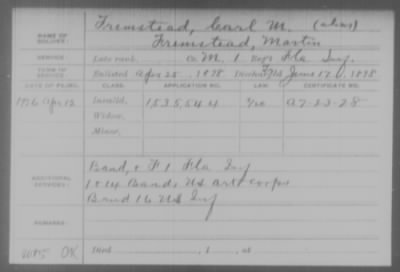 Fremstead, Carl M. (alias)
NAME OF SOLDIER: Fremstead, Martin
SERVICE: Late rank, Co. M, 1 Reg't Fla Inf.
TERM OF SERVICE: Enlisted Apr 25, 1898 Discharged June 17, 1898
DATE OF FILING. CLASS. APPLICATION NO. LAW. CERTIFICATE NO.
1926 Apr 12 Invalid, 1535544 A 7-23-28
Widow,
Minor,
ADDITIONAL SERVICES: Band, & F 1 Fla Inf
1 & 14 Bands US Art Corps
Band 16 US Inf
REMARKS:
OK Died , 1 , at